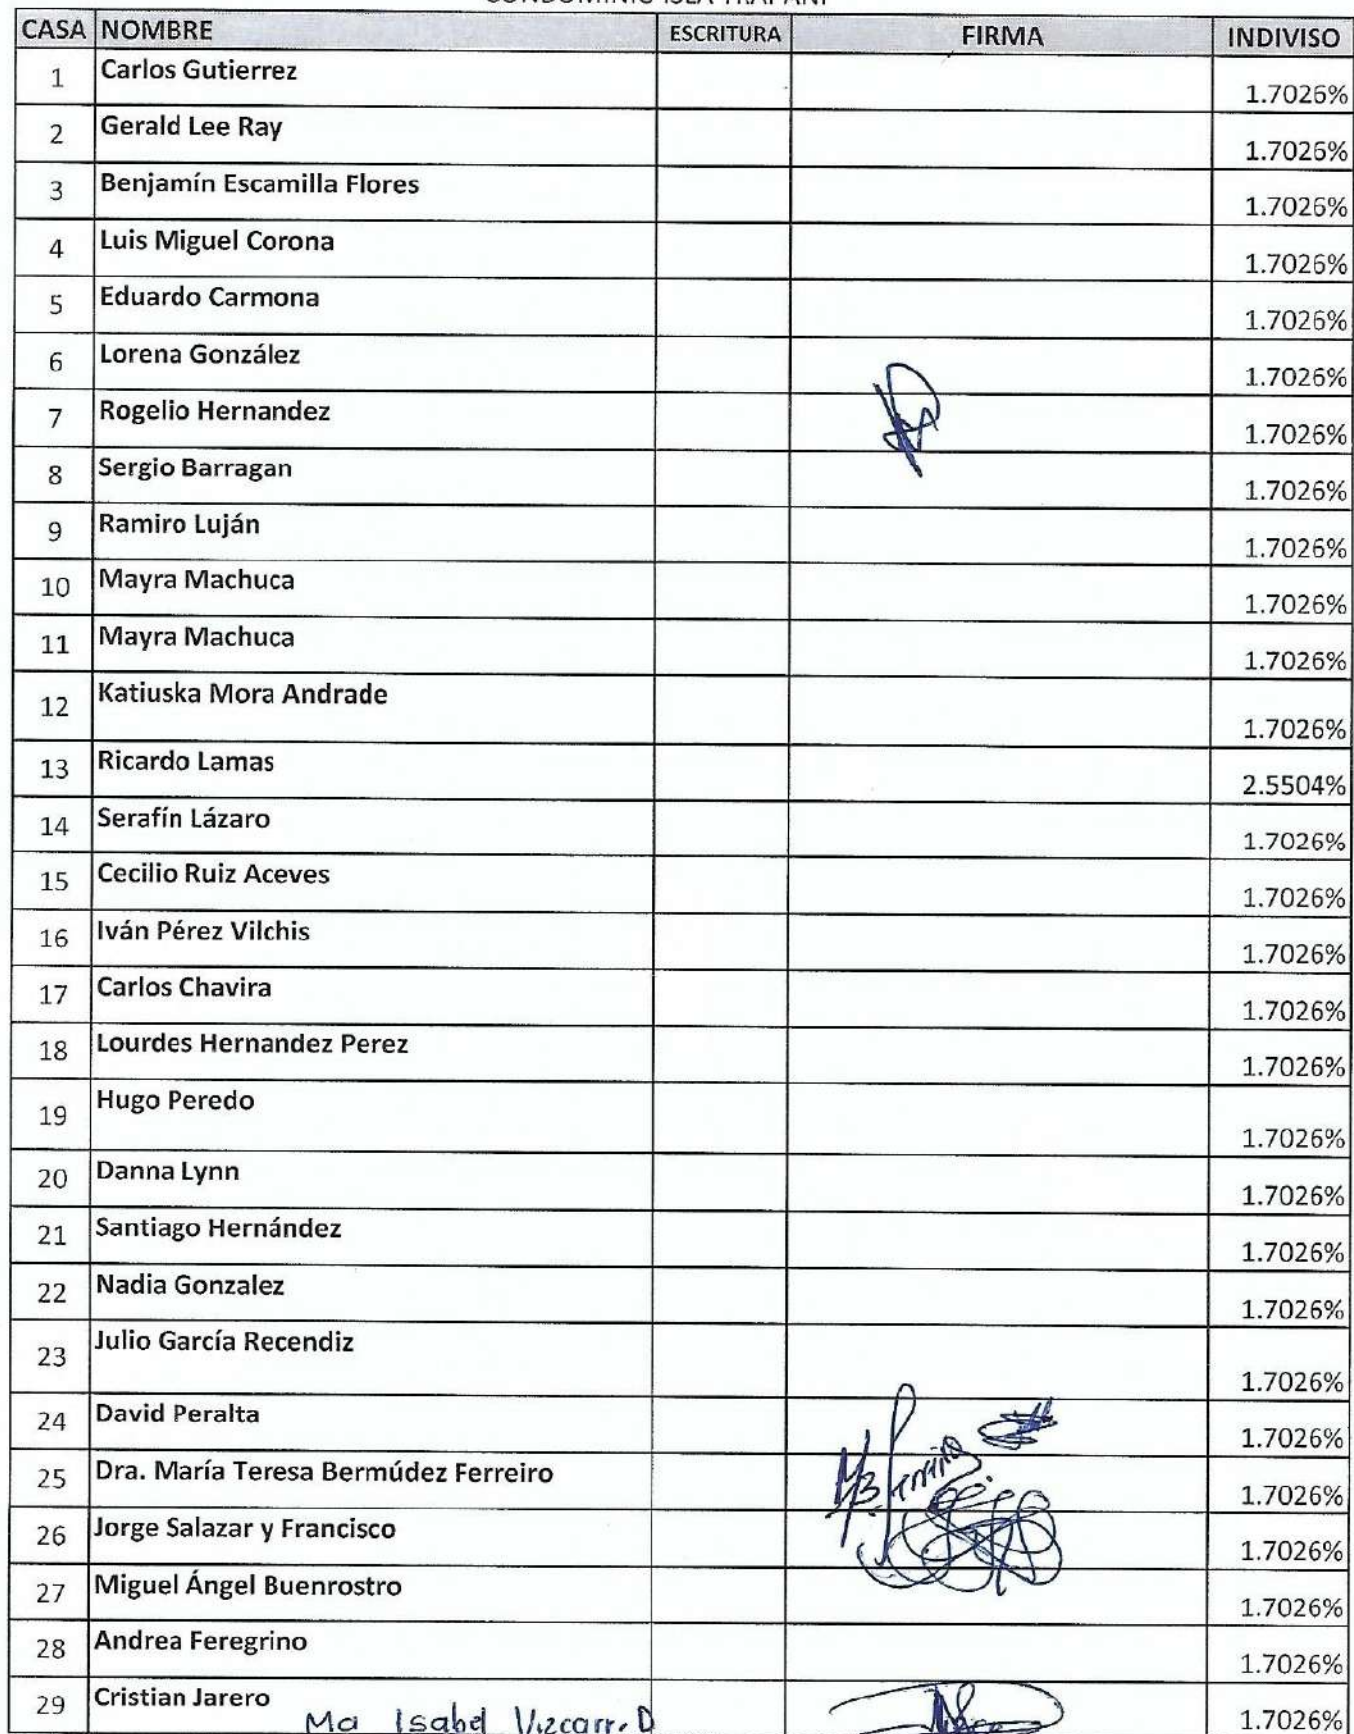 CONDOMINIO ISLA TRAPANI
CASA NOMBRE ESCRITURA FIRMA INDIVISO
1 Carlos Gutierrez 1.7026%
2 Gerald Lee Ray 1.7026%
3 Benjamín Escamilla Flores 1.7026%
4 Luis Miguel Corona 1.7026%
5 Eduardo Carmona 1.7026%
6 Lorena González 1.7026%
7 Rogelio Hernandez 1.7026%
8 Sergio Barragan 1.7026%
9 Ramiro Luján 1.7026%
10 Mayra Machuca 1.7026%
11 Mayra Machuca 1.7026%
12 Katiuska Mora Andrade 1.7026%
13 Ricardo Lamas 2.5504%
14 Serafín Lázaro 1.7026%
15 Cecilio Ruiz Aceves 1.7026%
16 Iván Pérez Vilchis 1.7026%
17 Carlos Chavira 1.7026%
18 Lourdes Hernandez Perez 1.7026%
19 Hugo Peredo 1.7026%
20 Danna Lynn 1.7026%
21 Santiago Hernández 1.7026%
22 Nadia Gonzalez 1.7026%
23 Julio García Recendiz 1.7026%
24 David Peralta 1.7026%
25 Dra. María Teresa Bermúdez Ferreiro 1.7026%
26 Jorge Salazar y Francisco 1.7026%
27 Miguel Ángel Buenrostro 1.7026%
28 Andrea Feregrino 1.7026%
29 Cristian Jarero 1.7026%
Ma Isabel